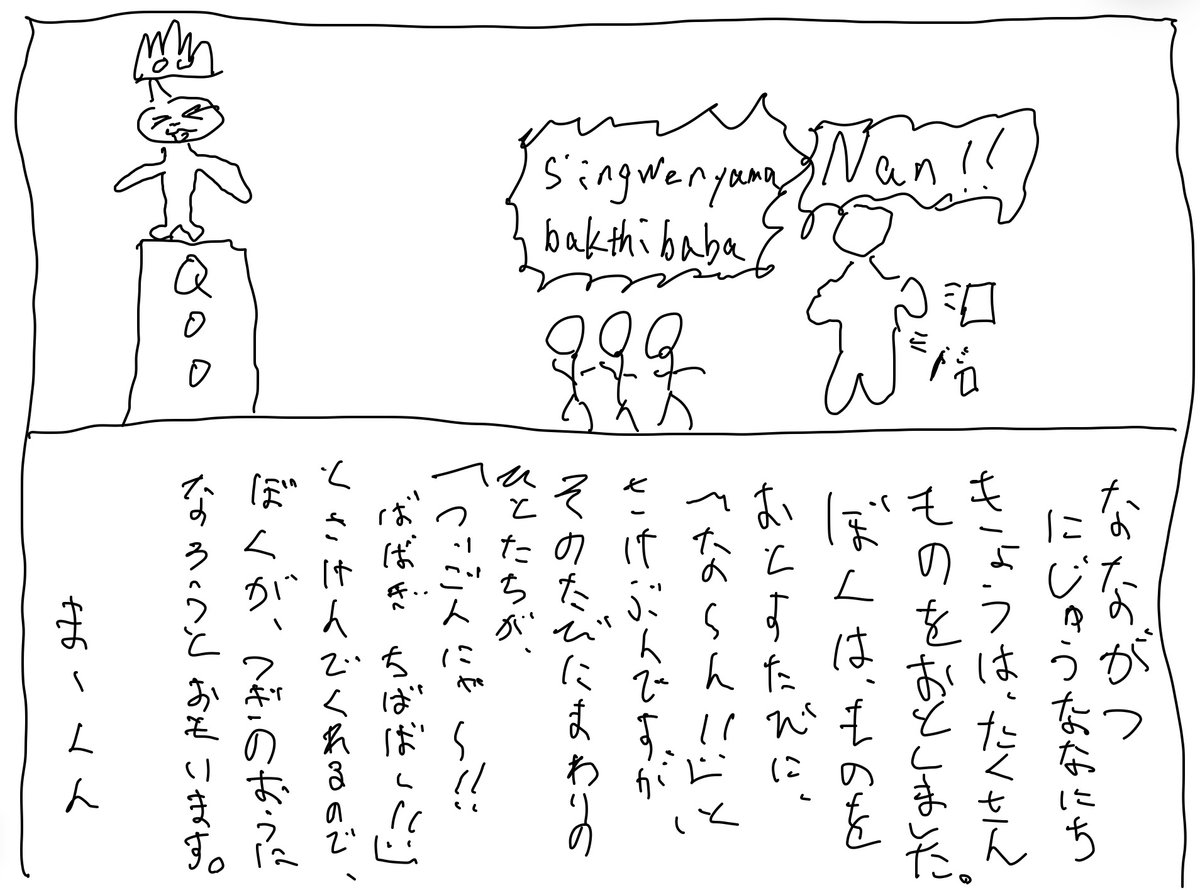 Q
O
O
Singwenyama
bakthibaba
Nan!!
なながつ
にじゅうななにち
きょうは、たくさん
ものをおとしました。
ぼくは、ものを
おとすたびに、
「な〜ん!!」と
さけぶんですが、
そのたびにまわりの
ひとたちが、
「つぃごんにゃ〜!!
ばばぎ ちばば〜!!」
とさけんでくれるので、
ぼくが、つぎのおうに
なろうとおもいます。
まーくん